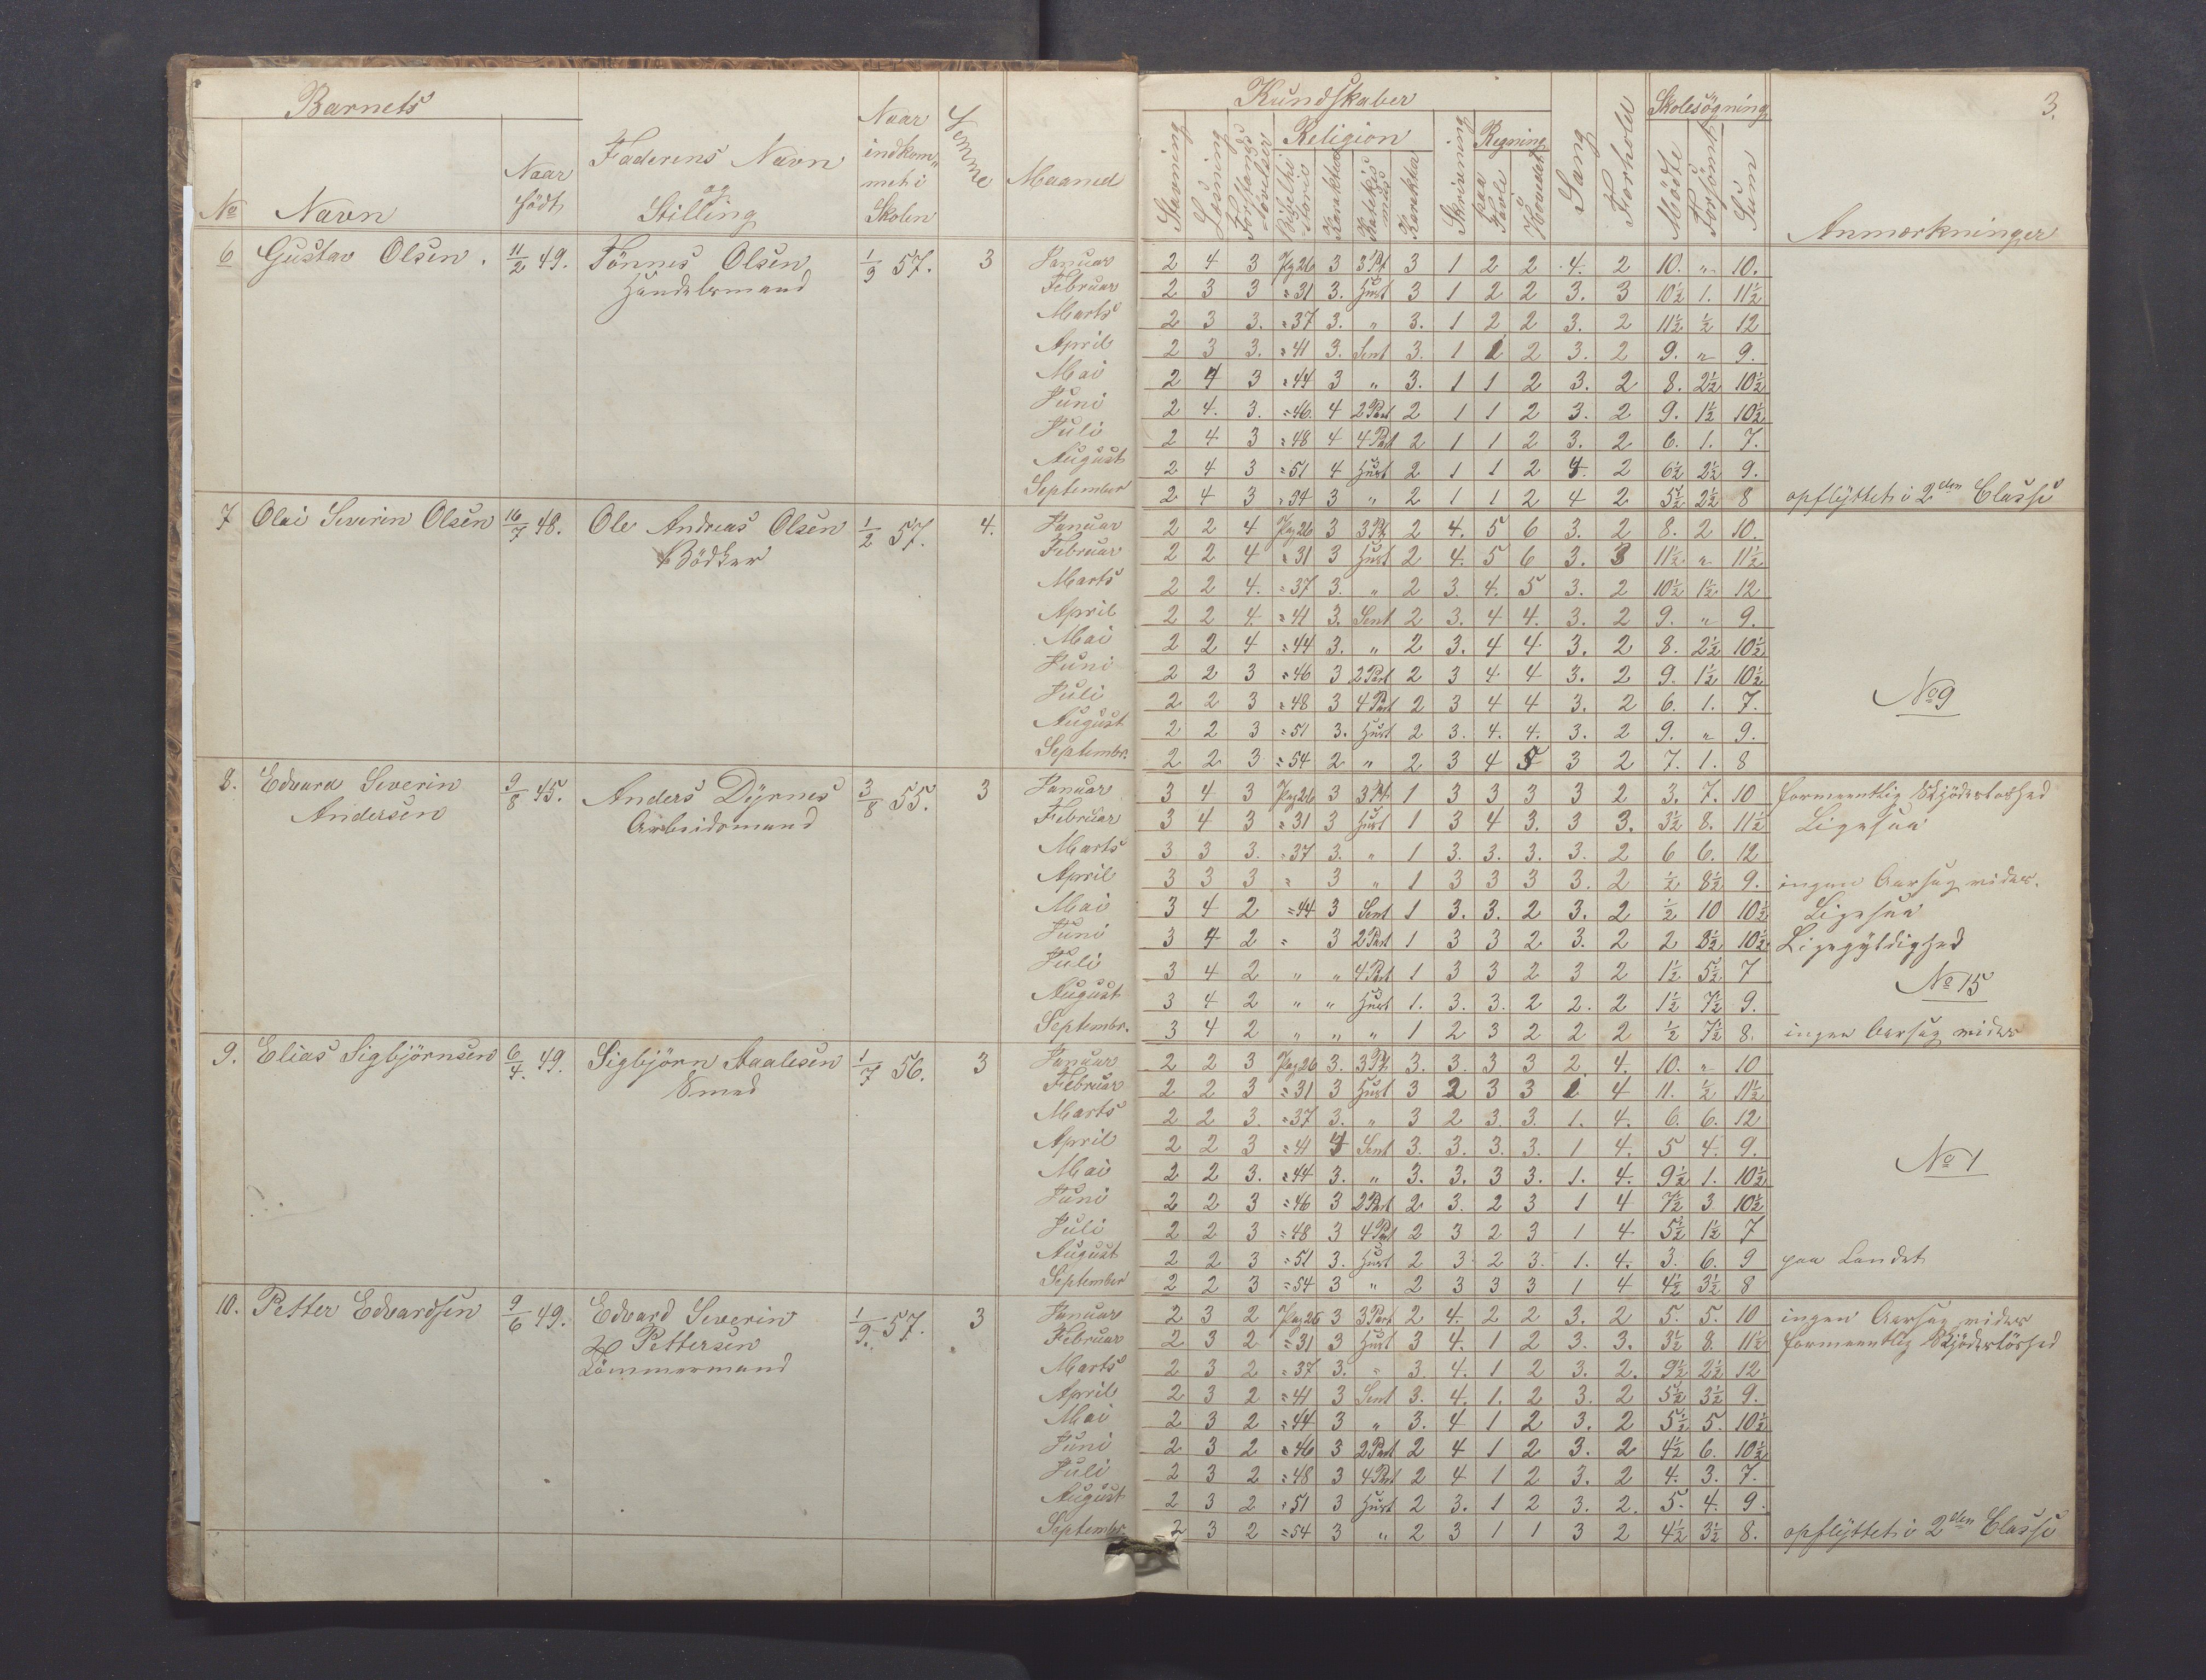 Barnets
No
Navn
Naar födt
Faderens Navn og Stilling
Naar indkommet i Skolen
Evne
Maaned
Kundskaber
Stavning
Læsning
Forstandsøvelser
Religion
Bibelhistorie
Karakter
Katekismus
Karakter
Skrivning
Regning
paa Tavle
i Hovedet
Sang
Forhold
Skolesögning
Mödte
Forsömt
Sum
Anmærkninger
3.
6 Gustav Olsen. 11/2 49. Tönnes Olsen 1/9 57. 3
Handelsmand
Januar 2 4 3 Pag 26 3 3 Pt 3 1 2 2 4. 2 10. " 10.
Februar 2 3 3 " 31 3. Hust 3 1 2 2 3. 3 10½ 1. 11½
Marts 2 3 3. " 37 3. " 3. 1 2 2 3. 2 11½ ½ 12
April 2 3 3. " 41 3. Sent 3. 1 1 2 3. 2 9. " 9.
Mai 2 4 3 " 44 3 " 3. 1 1 2 3. 2 8. 2½ 10½
Juni 2 4. 3. " 46. 4 2 Part 2 1 1 2 3. 2 9. 1½ 10½
Juli 2 4 3 " 48 4 4 Part 2 1 1 2 3. 2 6. 1. 7.
August 2 4 3 " 51 4 Hust 2 1 1 2 4. 2 6½ 2½ 9.
September 2 4 3 " 54 3 " 2 1 1 2 4 2 5½ 2½ 8 opflyttet i 2den Classe
7 Olai Severin Olsen 16/7 48. Ole Andreas Olsen 1/2 57. 4.
Bödker
Januar 2 2 4 Pag 26 3 3 Pt 2 4. 5 6 3. 2 8. 2 10.
Februar 2 2 4 " 31 3 Hust 2 4. 5 6 3. 3 11½ " 11½
Marts 2 2 4. " 37 3. " 2 3. 4. 5 3. 2 10½ 1½ 12
April 2 2 4. " 41 3. Sent 2 3. 4 4. 3. 2 9. " 9.
Mai 2 2 4 " 44 3. " 2 3. 4 4 3. 2 8. 2½ 10½
Juni 2 2 3 " 46 3 2 Part 2 3 4 4 3. 2 9. 1½ 10½
Juli 2 2 3 " 48 3 4 Part 2 3 4 4 3. 2 6. 1. 7. No 9
August 2 2 3 " 51 3. Hust 2 3. 4. 4. 3. 2 9. " 9.
Septembr. 2 2 3 " 54 2 " 2 3 4 5 3 2 7. 1. 8
8. Edvard Severin 9/8 45. Anders Dyrnes 3/8 55. 3
Andersen Arbeidsmand
Januar 3 4 3 Pag 26 3 3 Pt. 1 3 3 3 3 2 3. 7. 10 formeentlig Skjödeslöshed
Februar 3 4 3 " 31 3 Hust 1 3 4 3. 3 3. 3½ 8. 11½ Ligesaa
Marts 3 3 3. " 37 3. " 1 3. 3. 3. 3. 2 6 6. 12
April 3 3 3 " 3 " 1 3 3 3 3. 2 ½ 8½ 9. ingen Aarsag vides.
Mai 3 4 2 " 44 3 Sent 1 3. 3. 2 3. 2 ½ 10 10½ Ligesaa
Juni 3 4 2 " 3 2 Part 1 3 3 2 3. 2 2 8½ 10½ Ligegyldighed
Juli 3 4 2 " " 4 Part 1 3 3 2 3 2 1½ 5½ 7 No 15
August 3 4 2 " " Hust 1. 3. 3. 2 2. 2 1½ 7½ 9.
Septembr. 3 4 2 " " " 1 2 3 2 2 2 ½ 7½ 8. ingen Aarsag vides
9. Elias Sigbjörnsen 6/4. 49. Sigbjörn Staalesen 1/7 56. 3
Smed
Januar 2 2 3 Pag 26 3. 3 Pt 3. 3. 3 3 2. 4. 10. " 10
Februar 2 2 3 " 31 3 Hust 3 2 3 3 1 4 11. ½ 11½
Marts 2 2 3. " 37 3. " 3 2 3. 3. 1. 4. 6. 6. 12
April 2 2 3 " 41 4 Sent 3. 3. 3. 3. 1 4. 5 4. 9.
Mai 2 2 3. " 44 3. " 3. 3. 3 3. 1. 4. 9½ 1. 10½ No 1
Juni 2 2 3 " 46 3 2 Part 2 3. 2 3 1 4 7½ 3 10½
Juli 2 2 3 " 48 3 4 Part 2 3 2 3 1 4 5½ 1½ 7
August 2 2 3 " 51 3. Hust 2 3 2 3. 1. 4. 3. 6. 9 paa Landet
September 2 2 3 " 54 3 " 2 3 3 3 1 4 4½ 3½ 8
10. Petter Edvardsen 9/6 49. Edvard Severin 1/9. 57. 3
Pettersen
Tömmermand
Januar 2 3 2 Pag 26 3 3 Part 2 4. 2 2 3. 2 5. 5. 10 ingen Aarsag vides
Februar 2 3 2 " 31 3 Hust 3 4. 1 2 3. 3. 3½ 8. 11½ formeentlig Skjödeslöshed
Marts 2 3 2 " 37 3. " 3. 4. 1 2 3. 2. 9½ 2½ 12
April 2 3 2 " 41 3 Sent 3. 4. 1. 2 3. 2 5½ 3½ 9.
Mai 2 3 2 " 44 3 " 3. 4 1 2 3. 2 5½ 5. 10½
Juni 2 3 2 " 46 3 2 Part 2 4 1 2 3. 2 4½ 6. 10½
Juli 2 3 2 " 48 3 4 Part 2 4 1 2 3. 2 4. 3. 7.
August 2 3 2 " 51 3 Hust 2 3. 1 2 3. 2. 5. 4. 9.
Septembr. 2 3 2 " 54 3 " 2 3 1 1 3 2 4½ 3½ 8. opflyttet i 2den Classe